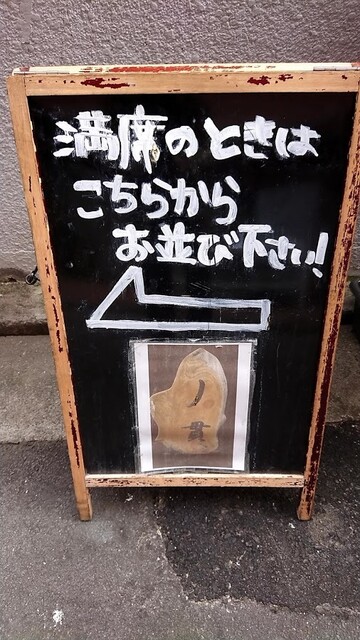 満席のときは
こちらから
お並び下さい!
ノ
貫